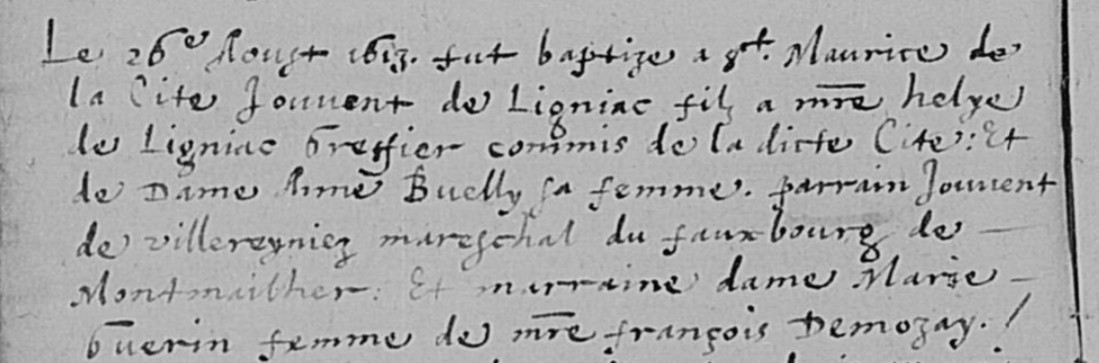 Le 26e Aoust 1613. fut baptize a St. Maurice de
la Cite Jouvent de Ligniac filz a mre helye
de Ligniac Greffier commis de la dicte Cite: Et
de Dame Anne Buelly sa femme. parrain Jouvent
de villereyniez mareschal du fauxbourg de
Montmailher. Et marraine dame Marie
Guerin femme de mre françois Demozay.